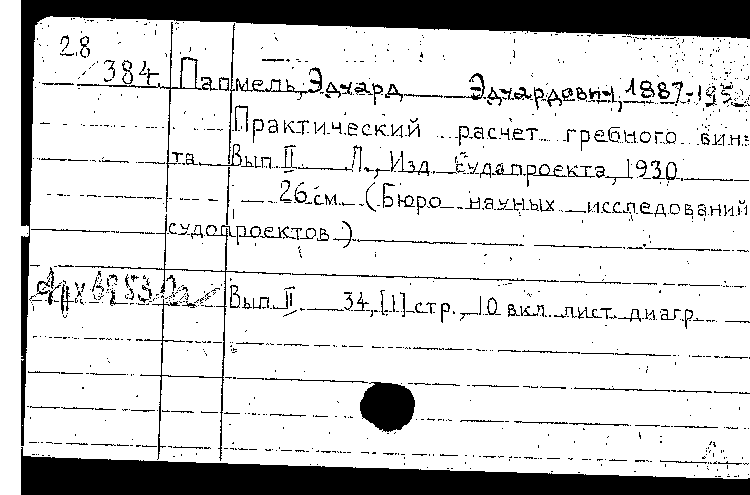 28
384. Папмель, Эдуард Эдуардович, 1887-195
Практический расчет гребного вин-
та. Вып II Л., Изд. Судапроекта, 1930
26 см. (Бюро научных исследований
судопроектов.)
Вып. II 34, [1] стр., 10 вкл. лист. диагр.